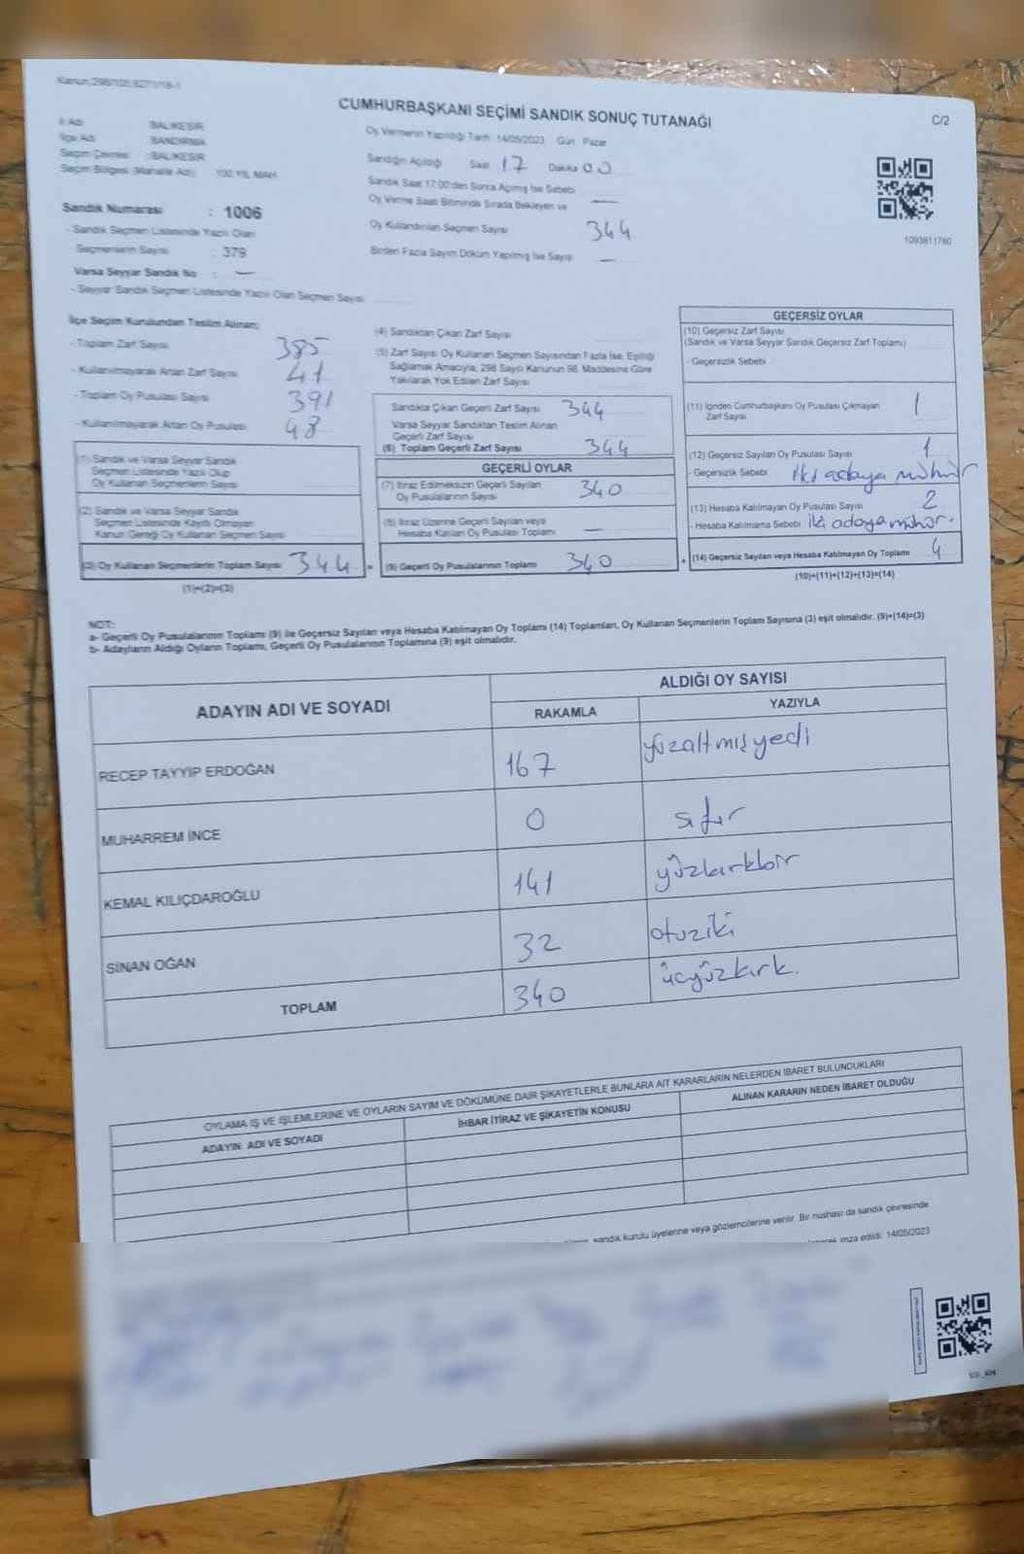 CUMHURBAŞKANI SEÇİMİ SANDIK SONUÇ TUTANAĞI
C/2
İl Adı BALIKESİR
İlçe Adı BANDIRMA
Seçim Çevresi : BALIKESİR
Seçim Bölgesi (Mahalle Adı) 100 YIL MAH.
Oy Vermenin Yapıldığı Tarih 14/05/2023 Gün Pazar
Sandığın Açıldığı Saat 17 Dakika 00
Sandık Saat 17:00'den Sonra Açılmış İse Sebebi
Oy Verme Saati Bitiminde Sırada Bekleyen ve —
Oy Kullandırılan Seçmen Sayısı 344
Birden Fazla Sayım Döküm Yapılmış İse Sayısı —
1093611760
Sandık Numarası : 1006
- Sandık Seçmen Listesinde Yazılı Olan
Seçmenlerin Sayısı : 379
Varsa Seyyar Sandık No : —
- Seyyar Sandık Seçmen Listesinde Yazılı Olan Seçmen Sayısı
İlçe Seçim Kurulundan Teslim Alınan;
- Toplam Zarf Sayısı 385
- Kullanılmayarak Artan Zarf Sayısı 41
- Toplam Oy Pusulası Sayısı 391
- Kullanılmayarak Artan Oy Pusulası 48
(1) Sandık ve Varsa Seyyar Sandık
Seçmen Listesinde Yazılı Olup
Oy Kullanan Seçmenlerin Sayısı
(2) Sandık ve Varsa Seyyar Sandık
Seçmen Listesinde Kayıtlı Olmayan
Kanun Gereği Oy Kullanan Seçmen Sayısı
(3) Oy Kullanan Seçmenlerin Toplam Sayısı 344
(1)+(2)=(3)
(4) Sandıktan Çıkan Zarf Sayısı
(5) Zarf Sayısı Oy Kullanan Seçmen Sayısından Fazla İse, Eşitliği
Sağlamak Amacıyla, 298 Sayılı Kanunun 98. Maddesine Göre
Yakılarak Yok Edilen Zarf Sayısı
Sandıkta Çıkan Geçerli Zarf Sayısı 344
Varsa Seyyar Sandıktan Teslim Alınan
Geçerli Zarf Sayısı
(6) Toplam Geçerli Zarf Sayısı 344
GEÇERLİ OYLAR
(7) İtiraz Edilmeksizin Geçerli Sayılan
Oy Pusulalarının Sayısı 340
(8) İtiraz Üzerine Geçerli Sayılan veya
Hesaba Katılan Oy Pusulası Toplamı —
(9) Geçerli Oy Pusulalarının Toplamı 340
GEÇERSİZ OYLAR
(10) Geçersiz Zarf Sayısı
(Sandık ve Varsa Seyyar Sandık Geçersiz Zarf Toplamı)
- Geçersizlik Sebebi
(11) İçinden Cumhurbaşkanı Oy Pusulası Çıkmayan
Zarf Sayısı 1
(12) Geçersiz Sayılan Oy Pusulası Sayısı 1
- Geçersizlik Sebebi iki adaya mühür
(13) Hesaba Katılmayan Oy Pusulası Sayısı 2
- Hesaba Katılmama Sebebi iki adaya mühür.
(14) Geçersiz Sayılan veya Hesaba Katılmayan Oy Toplamı 4
(10)+(11)+(12)+(13)=(14)
NOT:
a- Geçerli Oy Pusulalarının Toplamı (9) ile Geçersiz Sayılan veya Hesaba Katılmayan Oy Toplamı (14) Toplamları, Oy Kullanan Seçmenlerin Toplam Sayısına (3) eşit olmalıdır. (9)+(14)=(3)
b- Adayların Aldığı Oyların Toplamı, Geçerli Oy Pusulalarının Toplamına (9) eşit olmalıdır.
ADAYIN ADI VE SOYADI
ALDIĞI OY SAYISI
RAKAMLA YAZIYLA
RECEP TAYYİP ERDOĞAN 167 yüzaltmışyedi
MUHARREM İNCE 0 sıfır
KEMAL KILIÇDAROĞLU 141 yüzkırkbir
SİNAN OĞAN 32 otuziki
TOPLAM 340 üçyüzkırk.
OYLAMA İŞ VE İŞLEMLERİNE VE OYLARIN SAYIM VE DÖKÜMÜNE DAİR ŞİKAYETLERLE BUNLARA AİT KARARLARIN NELERDEN İBARET BULUNDUKLARI
ADAYIN ADI VE SOYADI İHBAR İTİRAZ VE ŞİKAYETİN KONUSU ALINAN KARARIN NEDEN İBARET OLDUĞU
sandık kurulu üyelerine veya gözlemcilerine verilir. Bir nüshası da sandık çevresinde
imza edildi. 14/05/2023